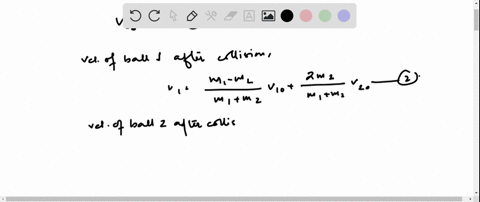 vel. of ball 1 after collision,
v₁ = (m₁-m₂)/(m₁+m₂) v₁₀ + 2m₂/(m₁+m₂) v₂₀ —— ②.
vel. of ball 2 after collis